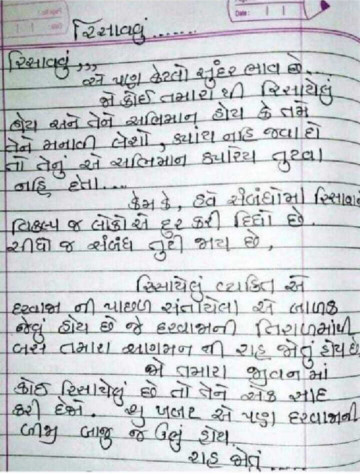 રિસાવવું......
રિસાવવું,,,
એ પણ કેટલો સુંદર ભાવ છે...
જો કોઈ તમારા થી રિસાયેલું
હોય અને તેને અભિમાન હોય કે તમે
તેને મનાવી લેશો, ક્યાંય નહિ જવા દો
તો તેનું એ અભિમાન ક્યારેય તુટવા
નહિ દેતા....
કેમકે, હવે સંબંધોમાં રિસાવાનો
વિકલ્પ જ લોકો એ દુર કરી દિધો છે.
સીધો જ સંબંધ તુટી જાય છે,
રિસાયેલું વ્યકિત એ
દરવાજા ની પાછળ સંતાયેલા એ બાળક
જેવું હોય છે જે દરવાજાની તિરાળમાંથી
બસ તમારા આગમન ની રાહ જોતું હોય છે
જો તમારા જીવન માં
કોઈ રિસાયેલું છે તો તેને એક સાદ
કરી દેજો. શુ ખબર એ પણ દરવાજાની
બીજી બાજુ જ ઉભું હોય.
રાહ જોતું......